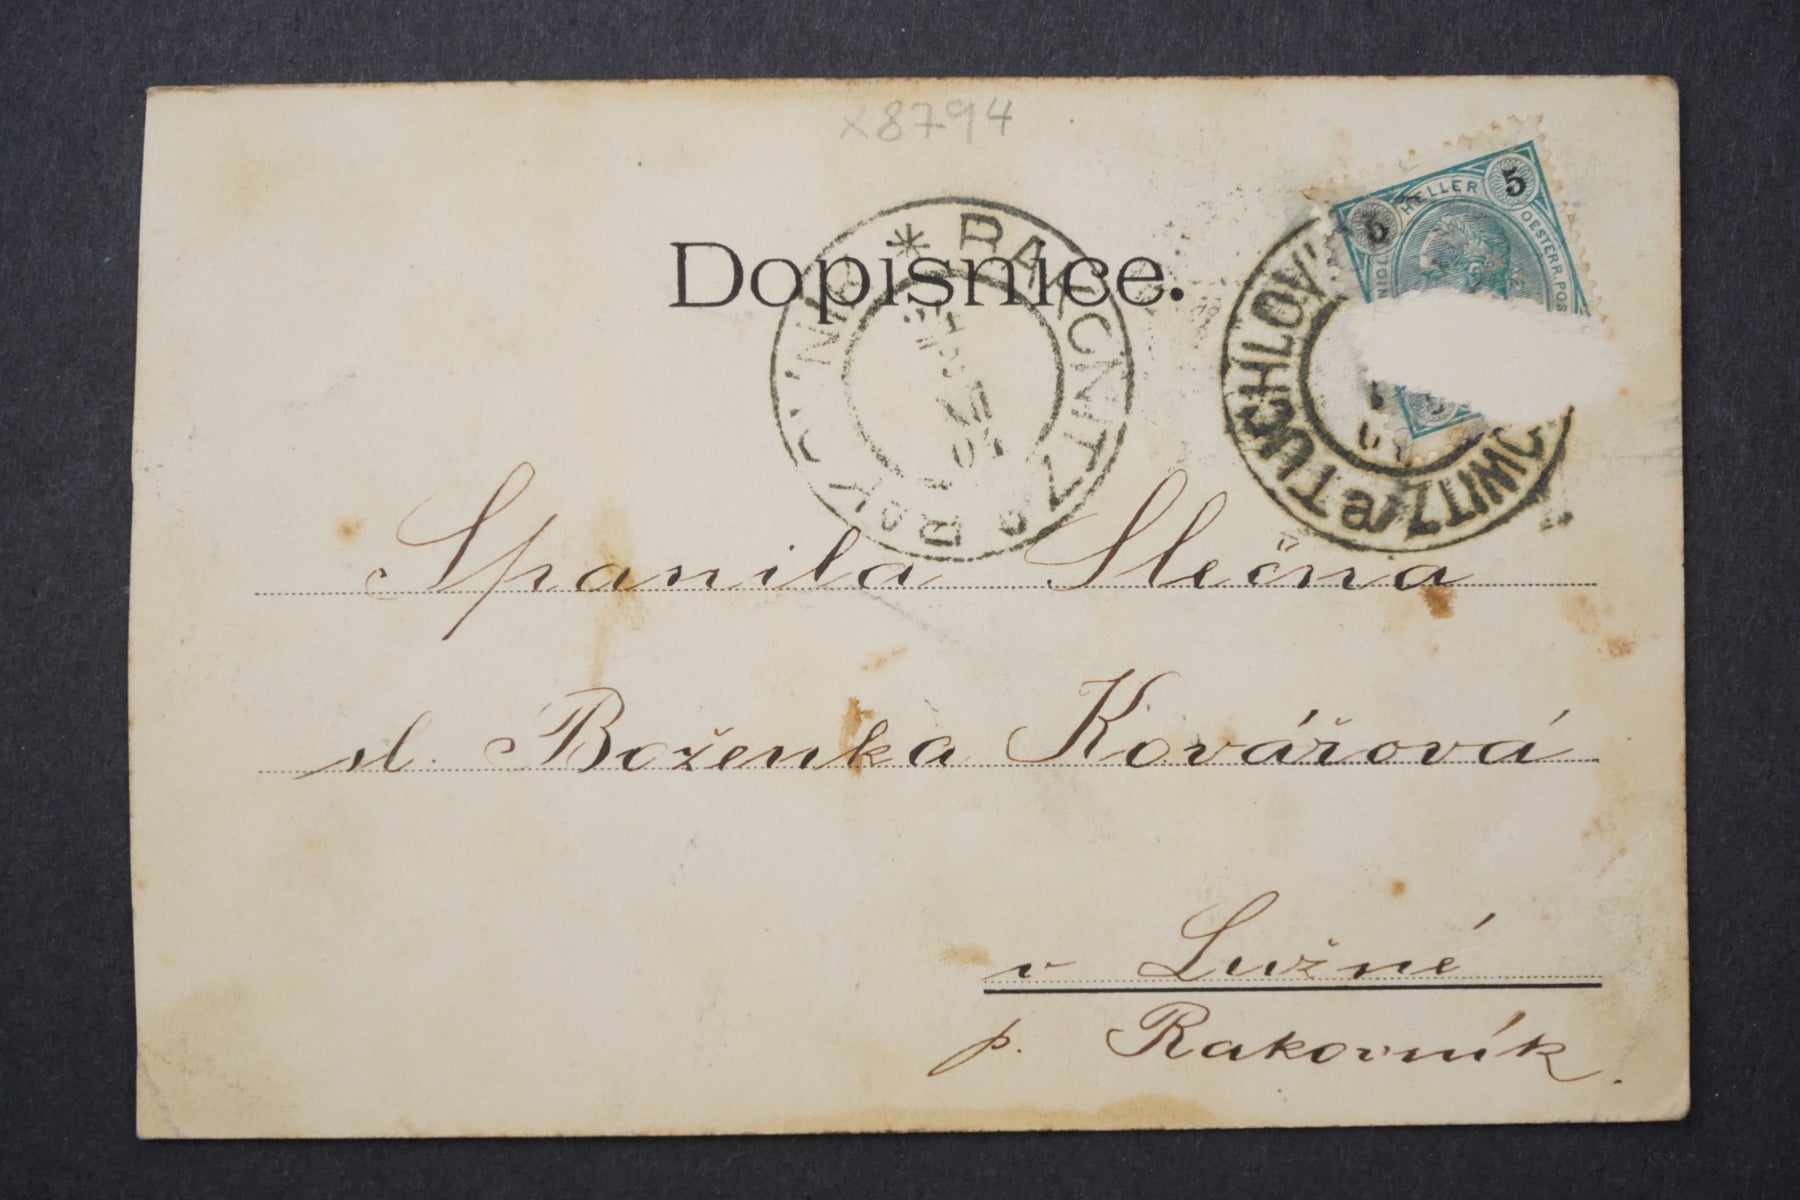 x8794
Dopisnice.
RAKONITZ * RAKOVNÍK
5 HELLER 5
OESTERR. POS
TUCHLOV
Spanilá Slečna
sl. Boženka Kovářová
v Lužné
p. Rakovník.